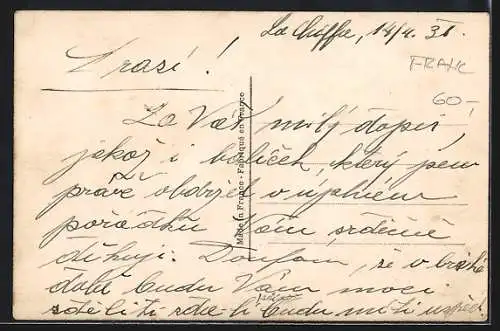 La Chiffa, 14/4. 31.
FRANC
60,-
Drazí!
Made in France - Fabriqué en France
Za Váš milý dopis,
jakož i balíček, který jsem
právě obdržel v úplném
pořádku Vám srdečně
děkuji. Doufám, že v brzké
době budu Vám moci
sděliti zda li budu míti